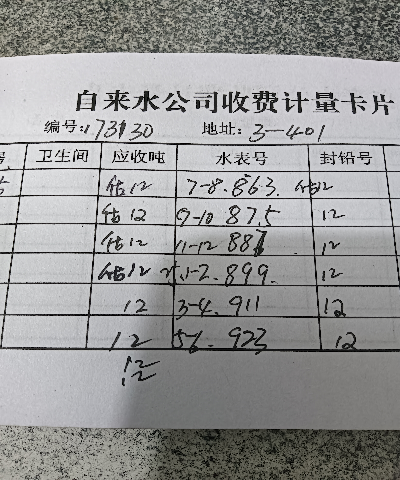 自来水公司收费计量卡片
编号: 173130 地址: 3-401
卫生间 应收吨 水表号 封铅号
估12 7-8. 863. 估12
估12 9-10 875 12
估12 11-12 887 12
估12 1-2. 899. 12
12 3-4. 911 12
12 56. 923 12
12
12